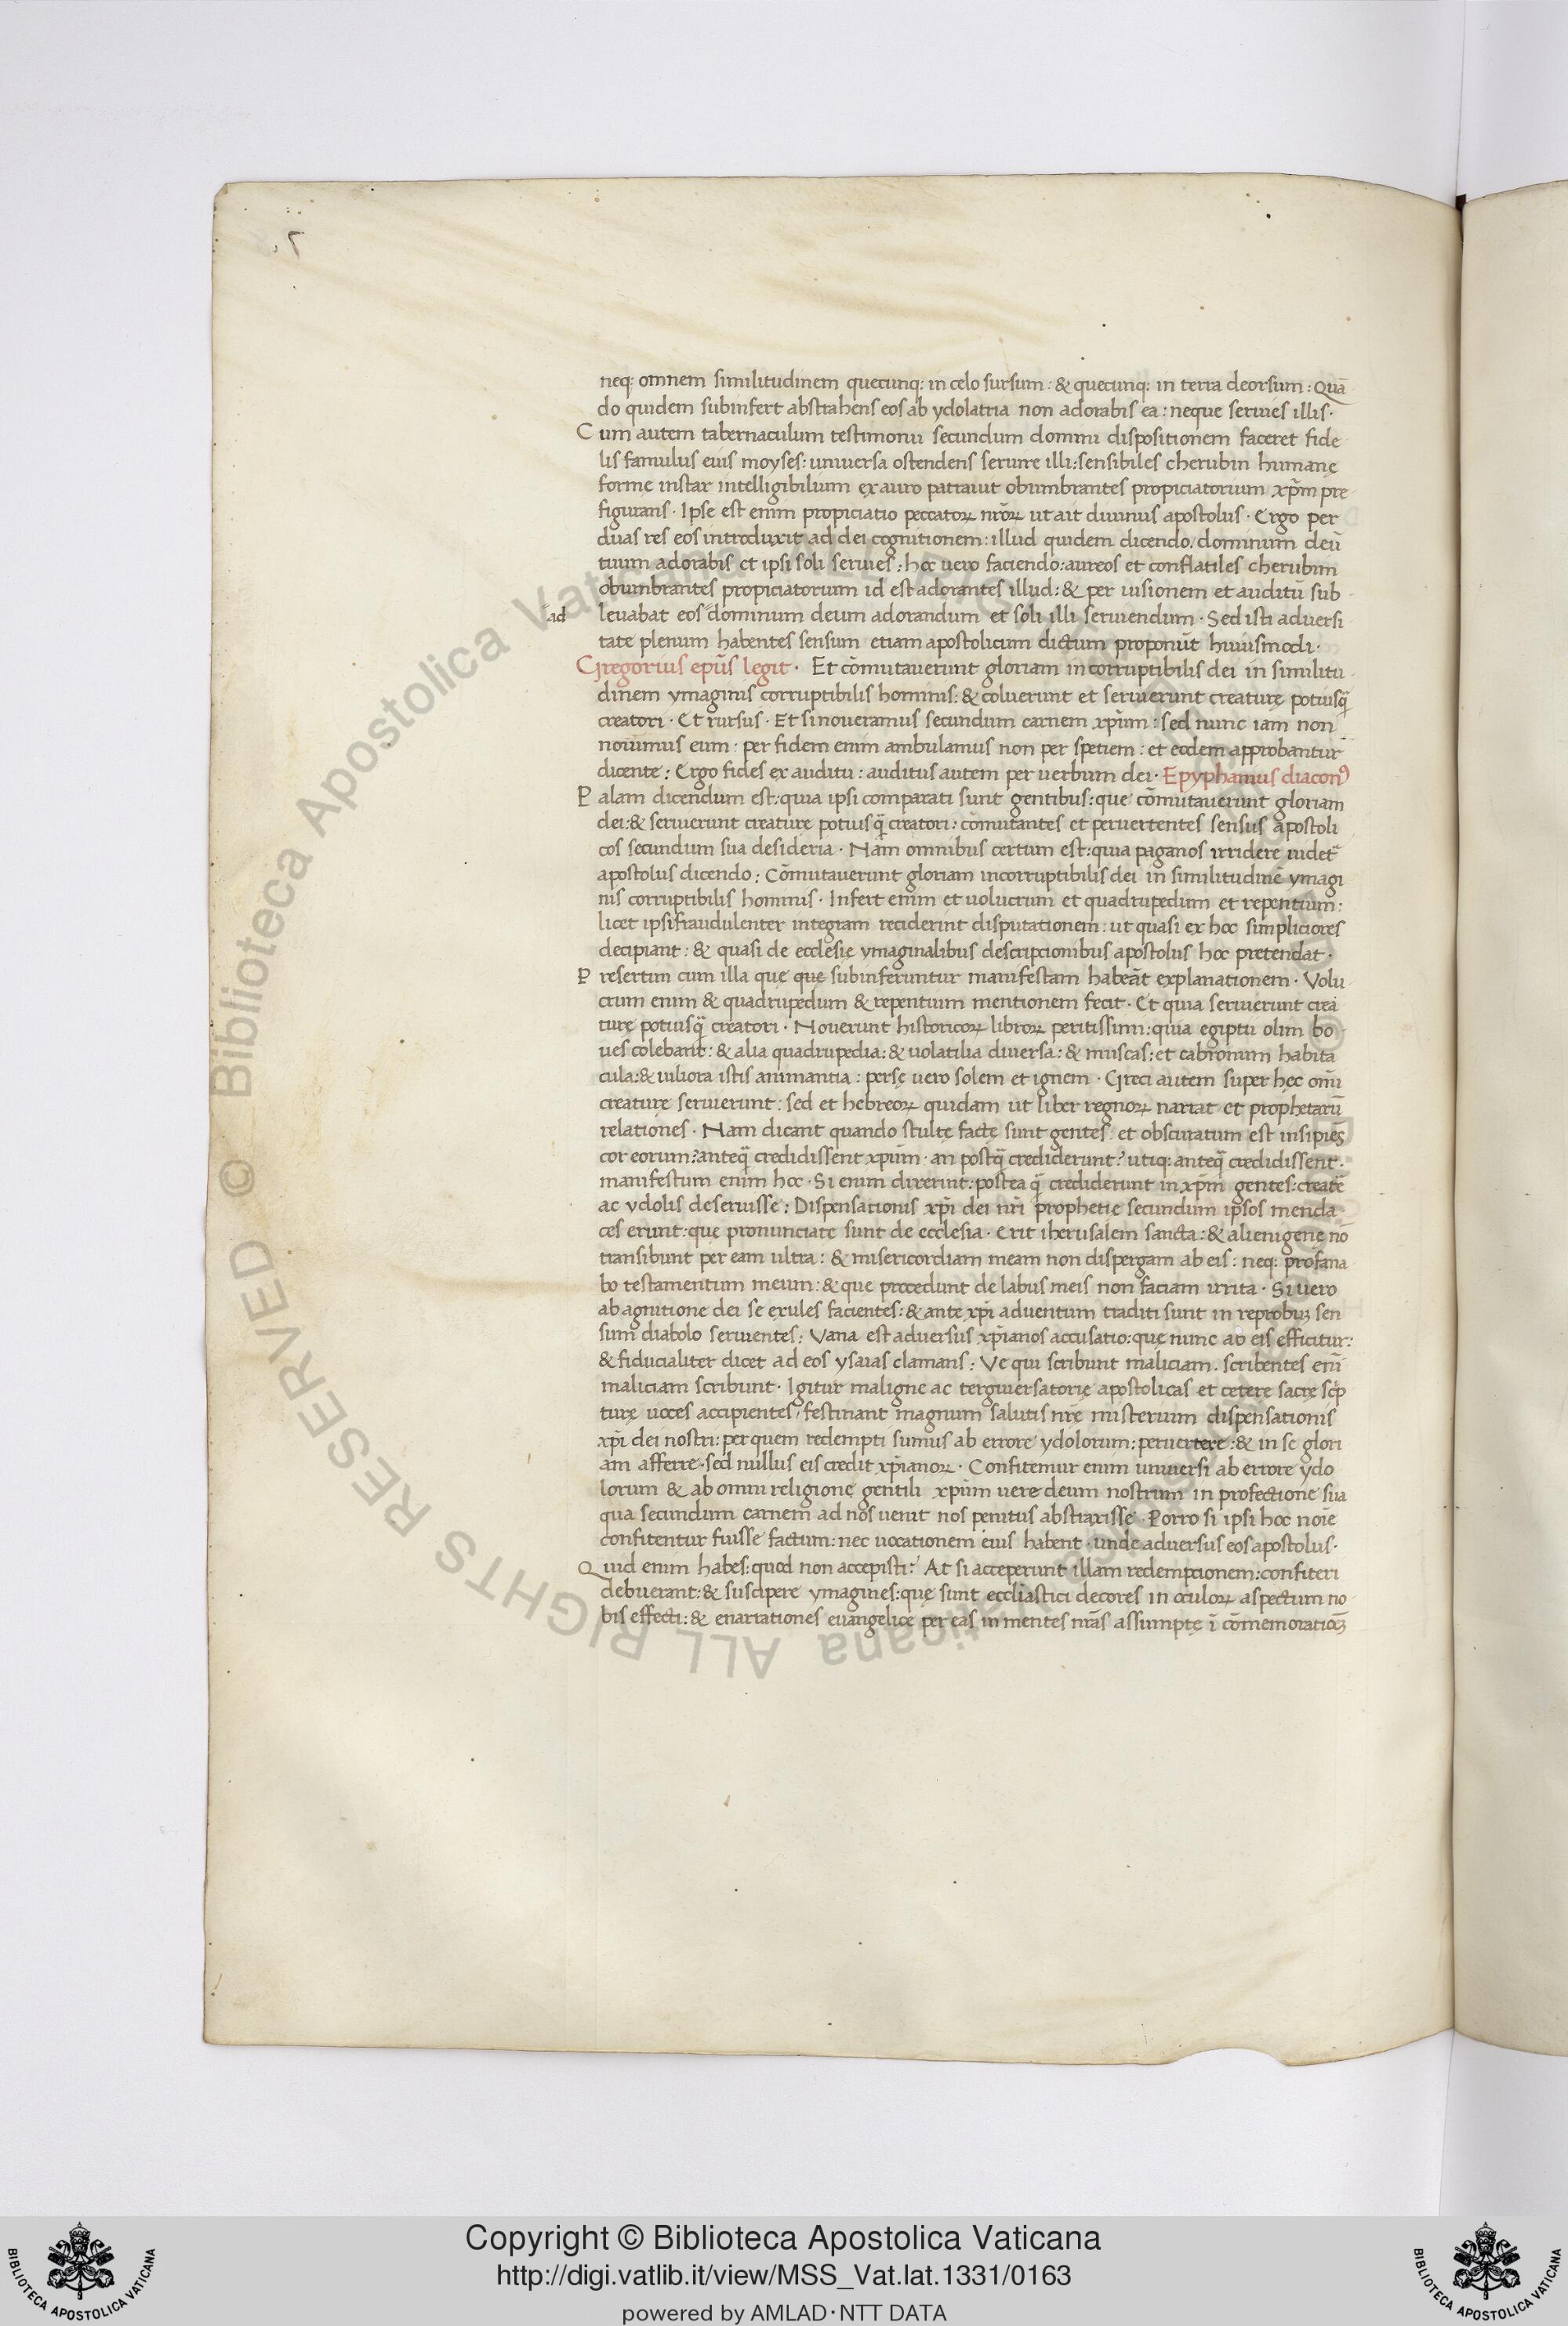 neq: omnem similitudinem quecunq: in celo sursum: & quecunq: in terra deorsum: Quā
do quidem subinfert abstrahens eos ab ydolatria non adorabis ea: neque servies illis·
Cum autem tabernaculum testimonii secundum domini dispositionem faceret fide
lis famulus eius moyses: universa ostendens servire illi: sensibiles cherubin humanę
formę instar intelligibilium ex auro patravit obumbrantes propiciatorium xp̄m pre
figurans· Ipse est enim propiciatio peccatoꝝ nr̄oꝝ ut ait divinus apostolus· Ergo per
duas res eos introduxit ad dei cognitionem: illud quidem dicendo. dominum deū
tuum adorabis et ipsi soli servies: hoc vero faciendo: aureos et conflatiles cherubim
obumbrantes propiciatorium id est adorantes illud: & per visionem et auditū sub
ad
levabat eos dominum deum adorandum et soli illi serviendum· Sed isti adversi
tate plenum habentes sensum etiam apostolicum dictum proponūt huiusmodi·
Gregorius ep̄us legit· Et cōmutaverunt gloriam incorruptibilis dei in similitu
dinem ymaginis corruptibilis hominis: & coluerunt et servierunt creaturę potiusq̄
creatori· Et rursus· Et si noveramus secundum carnem xp̄um: sed nunc iam non
novimus eum: per fidem enim ambulamus non per spetiem: et eodem approbantur
dicente: Ergo fides ex auditu: auditus autem per verbum dei· Epyphanius diaconꝰ
Palam dicendum est: quia ipsi comparati sunt gentibus: que cōmutaverunt gloriam
dei: & servierunt creaturę potiusq̄ creatori: cōmutantes et pervertentes sensus apostoli
cos secundum sua desideria· Nam omnibus certum est: quia paganos irridere videt̄
apostolus dicendo: Cōmutaverunt gloriam incorruptibilis dei in similitudinē ymagi
nis corruptibilis hominis· Infert enim et volucrum et quadrupedum et repentium:
licet ipsi fraudulenter integram reciderint disputationem: ut quasi ex hoc simpliciores
decipiant: & quasi de ecclesię ymaginalibus descripcionibus apostolus hoc pretendat·
Presertim cum illa que que subinferuntur manifestam habeāt explanationem· Volu
crum enim & quadrupedum & repentium mentionem fecit· Et quia servierunt crea
turę potiusq̄ creatori· Noverunt historicoꝝ libroꝝ peritissimi: quia egiptii olim bo
ves colebant: & alia quadrupedia: & volatilia diversa: & muscas: et cabronum habita
cula: & viliora istis animantia: persę vero solem et ignem· Greci autem super hęc om̄i
creaturę servierunt: sed et hebreoꝝ quidam ut liber regnoꝝ narrat et prophetarū
relationes· Nam dicant quando stultę factę sunt gentes: et obscuratum est insipiēs
cor eorum? anteq̄ credidissent xp̄um· an postq̄ crediderunt? utiq: anteq̄ credidissent·
manifestum enim hoc· Si enim dixerint: postea q̄ crediderunt in xp̄m gentes: creatę
ac ydolis deservisse: Dispensationis xp̄i dei nr̄i prophetię secundum ipsos menda
ces erunt: quę pronunciate sunt de ecclesia· Erit iherusalem sancta: & alienigenę nō
transibunt per eam ultra: & misericordiam meam non dispergam ab eis: neq: profana
bo testamentum meum: & que procedunt de labiis meis non faciam irrita· Si vero
ab agnitione dei se exules facientes: & ante xp̄i adventum traditi sunt in reprobuꝫ sen
sum diabolo servientes: Vana est adversus xp̄ianos accusatio: quę nunc ab eis efficitur:
& fiducialiter dicet ad eos ysaias clamans: Ve qui scribunt maliciam. scribentes eni᷒
maliciam scribunt· Igitur maligne ac tergiversatorie apostolicas et ceterę sacrę sc̄p
turę voces accipientes, festinant magnum salutis nr̄e misterium dispensationis
xp̄i dei nostri: per quem redempti sumus ab errore ydolorum: pervertere: & in se glori
am afferre· sed nullus eis credit xp̄ianoꝝ· Confitemur enim universi ab errore ydo
lorum & ab omni religione gentili xp̄um vere deum nostrum in profectione sua
qua secundum carnem ad nos venit nos penitus abstraxisse· Porro si ipsi hoc noīe
confitentur fuisse factum: nec vocationem eius habent· unde adversus eos apostolus·
Quid enim habes: quod non accepisti? At si acceperunt illam redempcionem: confiteri
debuerant: & suscipere ymagines: quę sunt eccliastici decores in oculoꝝ aspectum no
bis effecti: & enarrationes evangelicę per eas in mentes nr̄as assumptę ī cōmemorationeꝫ
Copyright © Biblioteca Apostolica Vaticana
http://digi.vatlib.it/view/MSS_Vat.lat.1331/0163
powered by AMLAD·NTT DATA
BIBLIOTECA APOSTOLICA VATICANA
BIBLIOTECA APOSTOLICA VATICANA